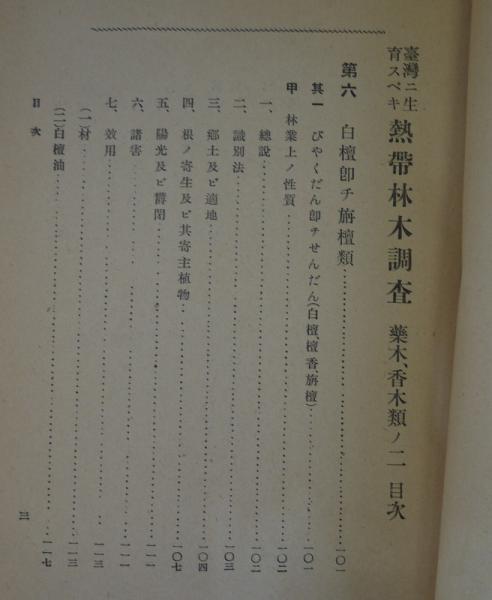 臺灣ニ生育スベキ 熱帶林木調査 藥木、香木類ノ二 目次
第六 白檀卽チ旃檀類 一〇一
其一 びやくだん卽チせんだん(白檀、檀香、旃檀) 一〇一
甲 林業上ノ性質 一〇二
一、總說 一〇二
二、識別法 一〇三
三、鄕土及ビ適地 一〇四
四、根ノ寄生及ビ其寄主植物 一〇七
五、陽光及ビ欝閉 一一一
六、諸害 一一一
七、效用 一一三
(一)材 一一三
(二)白檀油 一一七
目次
三